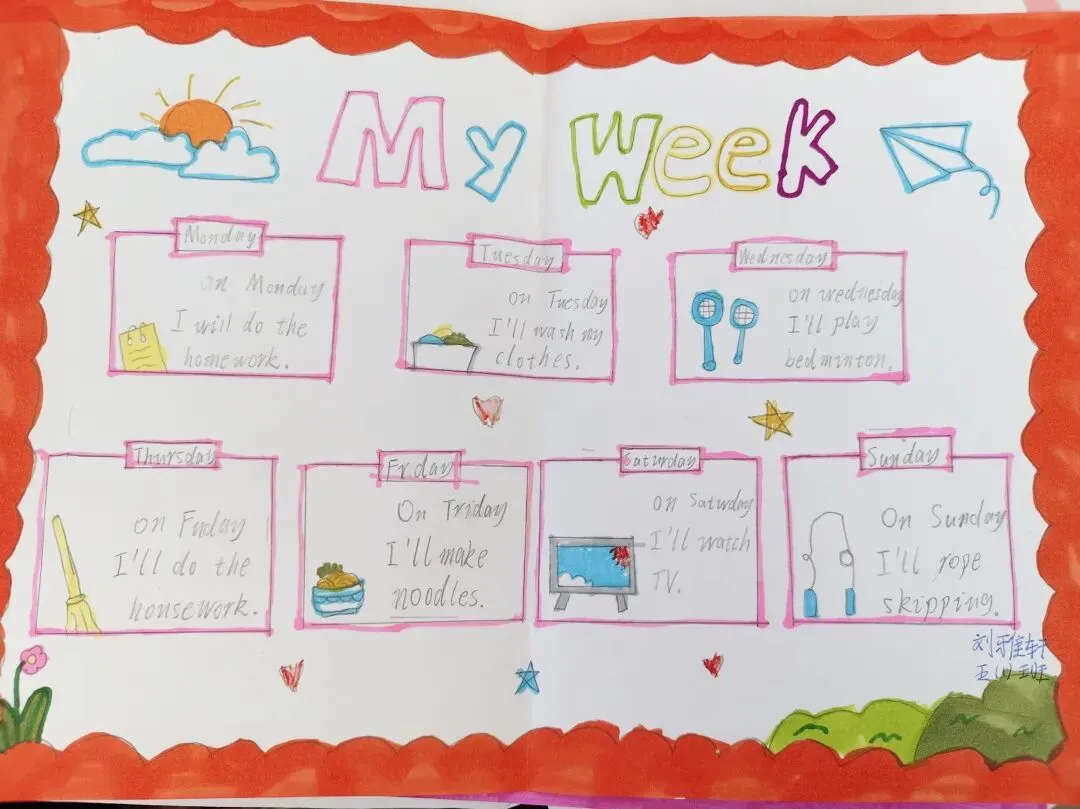 My Week
Monday
on Monday
I will do the
homework.
Tuesday
on Tuesday
I'll wash my
clothes.
Wednesday
on wednesday
I'll play
bedminton.
Thursday
on Fuday
I'll do the
housework.
Friday
On Triday
I'll make
noodles.
Saturday
on Saturday
I'll watch
TV.
Sunday
On Sunday
I'll rope
skipping.
刘雅轩
五(1)班